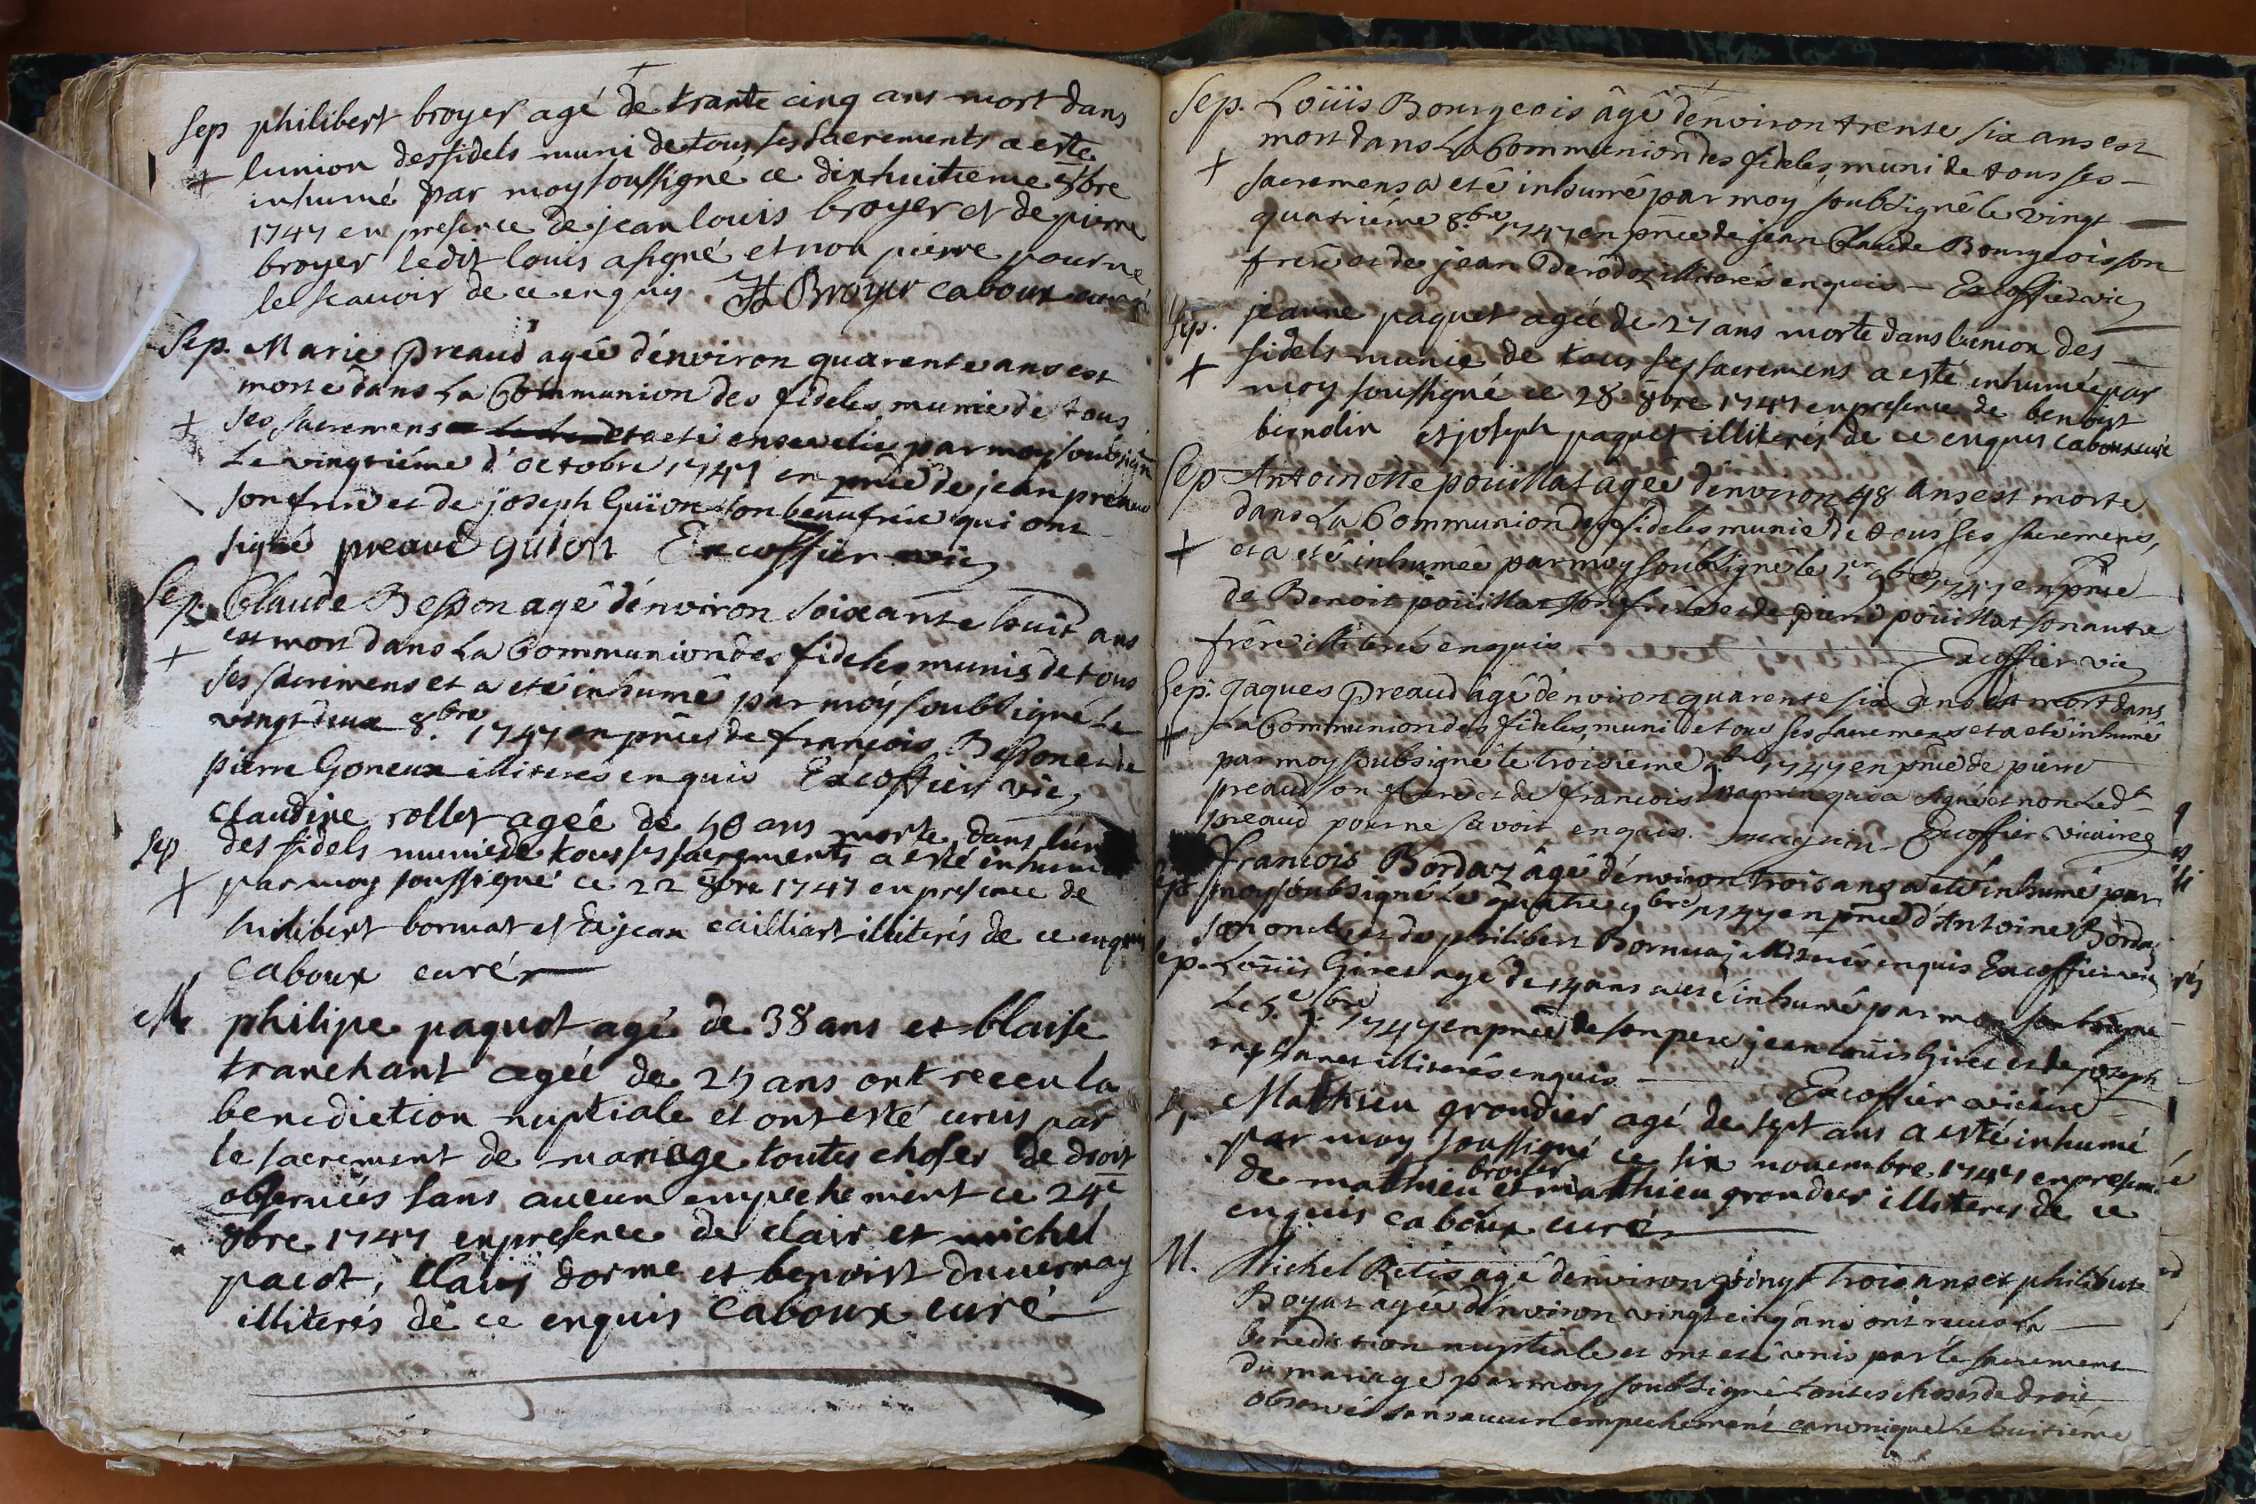 Sep philibert broyer agé de trante cinq ans mort dans
lunion des fidels muni de tous ses sacrements a esté
inhumé par moy soussigné ce dixhuitieme 8bre
1747 en presence de jean louis broyer et de pierre
broyer ledit louis a signé et non pierre pour ne
le scauoir de ce enquis. JL Broyer caboux curé
Sep. Marie Preaud agée d'énviron quarente ans est
morte dans La Communion des fideles, munie de tous
ses sacremens et a eté ensevelie par moy soubsigné
Le vingtiéme d'octobre 1747 en pnce de jean preaud
son frere et de joseph Guion son beaufrere qui ont
signé preaud guion Excoffier vic
Sep. Claude Besson agé d'énviron soixante huit ans
est mort dans La Communion des fideles munis de tous
ses sacremens et a eté inhumé par moy soubsigné Le
vingt deux 8.bre 1747 en pnce de françois Besson et de
pierre Goneux illiterés enquis Excoffier vic
Sep claudine rollet agée de 50 ans morte dans lun
des fidels munie de tous ses sacrements a esté inhumé
par moy soussigné ce 22 8bre 1747 en presence de
hilibert bornat et de jean cailliart illiterés de ce enquis
caboux curé
M philipe paquot agé de 38 ans et blaise
tranchant agée de 25 ans ont receu la
benediction nuptiale et ont esté unis par
le sacrement de mariage toutes choses de droit
obseruées sans aucun empechement ce 24e
8bre 1747 en presence de clair et michel
pacot, clair dorme et benoist duuernay
illiterés de ce enquis caboux curé
Sep. Loüis Bourgeois âgé d'énviron trente six ans est
mort dans La Communion des fideles, muni de tous ses
sacremens a eté inhumé par moy soubsigné le vingt
quatriéme 8.bre 1747 en pnce de jean Claude Bourgeois son
frere et de jean Derodoz illiterés enquis Excoffier vic
Sep. jeanne paquet agée de 27 ans morte dans lunion des
fidels munie de tous ses sacremens a esté inhumée par
moy soussigné ce 28 8bre 1747 en presence de benoist
bendin et joseph paquet illiterés de ce enquis caboux curé
Sep Antoinette pouillat âgée d'énviron 48 ans est morte
dans La Communion des fideles munie de tous ses sacremens,
et a eté inhumée par moy soubsigné le 1er 9bre 1747 en pnce
de Benoit pouillat son frere et de pierre pouillat son autre
frere illiterés enquis Excoffier vic
Sep. Jaques Preaud âgé d'énviron quarente six ans est mort dans
La Communion des fideles, muni de tous ses sacremens et a eté inhumé
par moy soubsigné le troisiéme 9bre 1747 en pnce de pierre
preaud son frere et de francois qui a signé et non Ledt
preaud pour ne savoir enquis. Excoffier vicaire
ep. francois Bordaz âgé d'énviron trois ans a eté inhumé par
moy soubsigné Le quatre 9bre 1747 en pnce d'Antoine Bordaz
son oncle et de philibert Bornuaz illiterés enquis Excoffier vic
ep. Loüis Giret agé de 14 ans a eté inhumé par moy soubsigné
Le 5.e 9bre 1747 en pnce de son pere jean louis Giret et de joseph
illiterés enquis Excoffier vicaire
Mathieu grondier agé de sept ans a esté inhumé
par moy soussigné ce six nouembre 1747 en presence
broyer
de mathieu et mathieu grondier illiterés de ce
enquis caboux curé
M. Michel Retis agé d'énviron vingt trois ans et philiberte
Boyat agée d'énviron vingt cinq ans ont receu la
benediction nuptiale et ont eté unis par le sacrement
du mariage par moy soubsigné toutes choses de droit
observées sans aucun empechement canonique Le huitieme